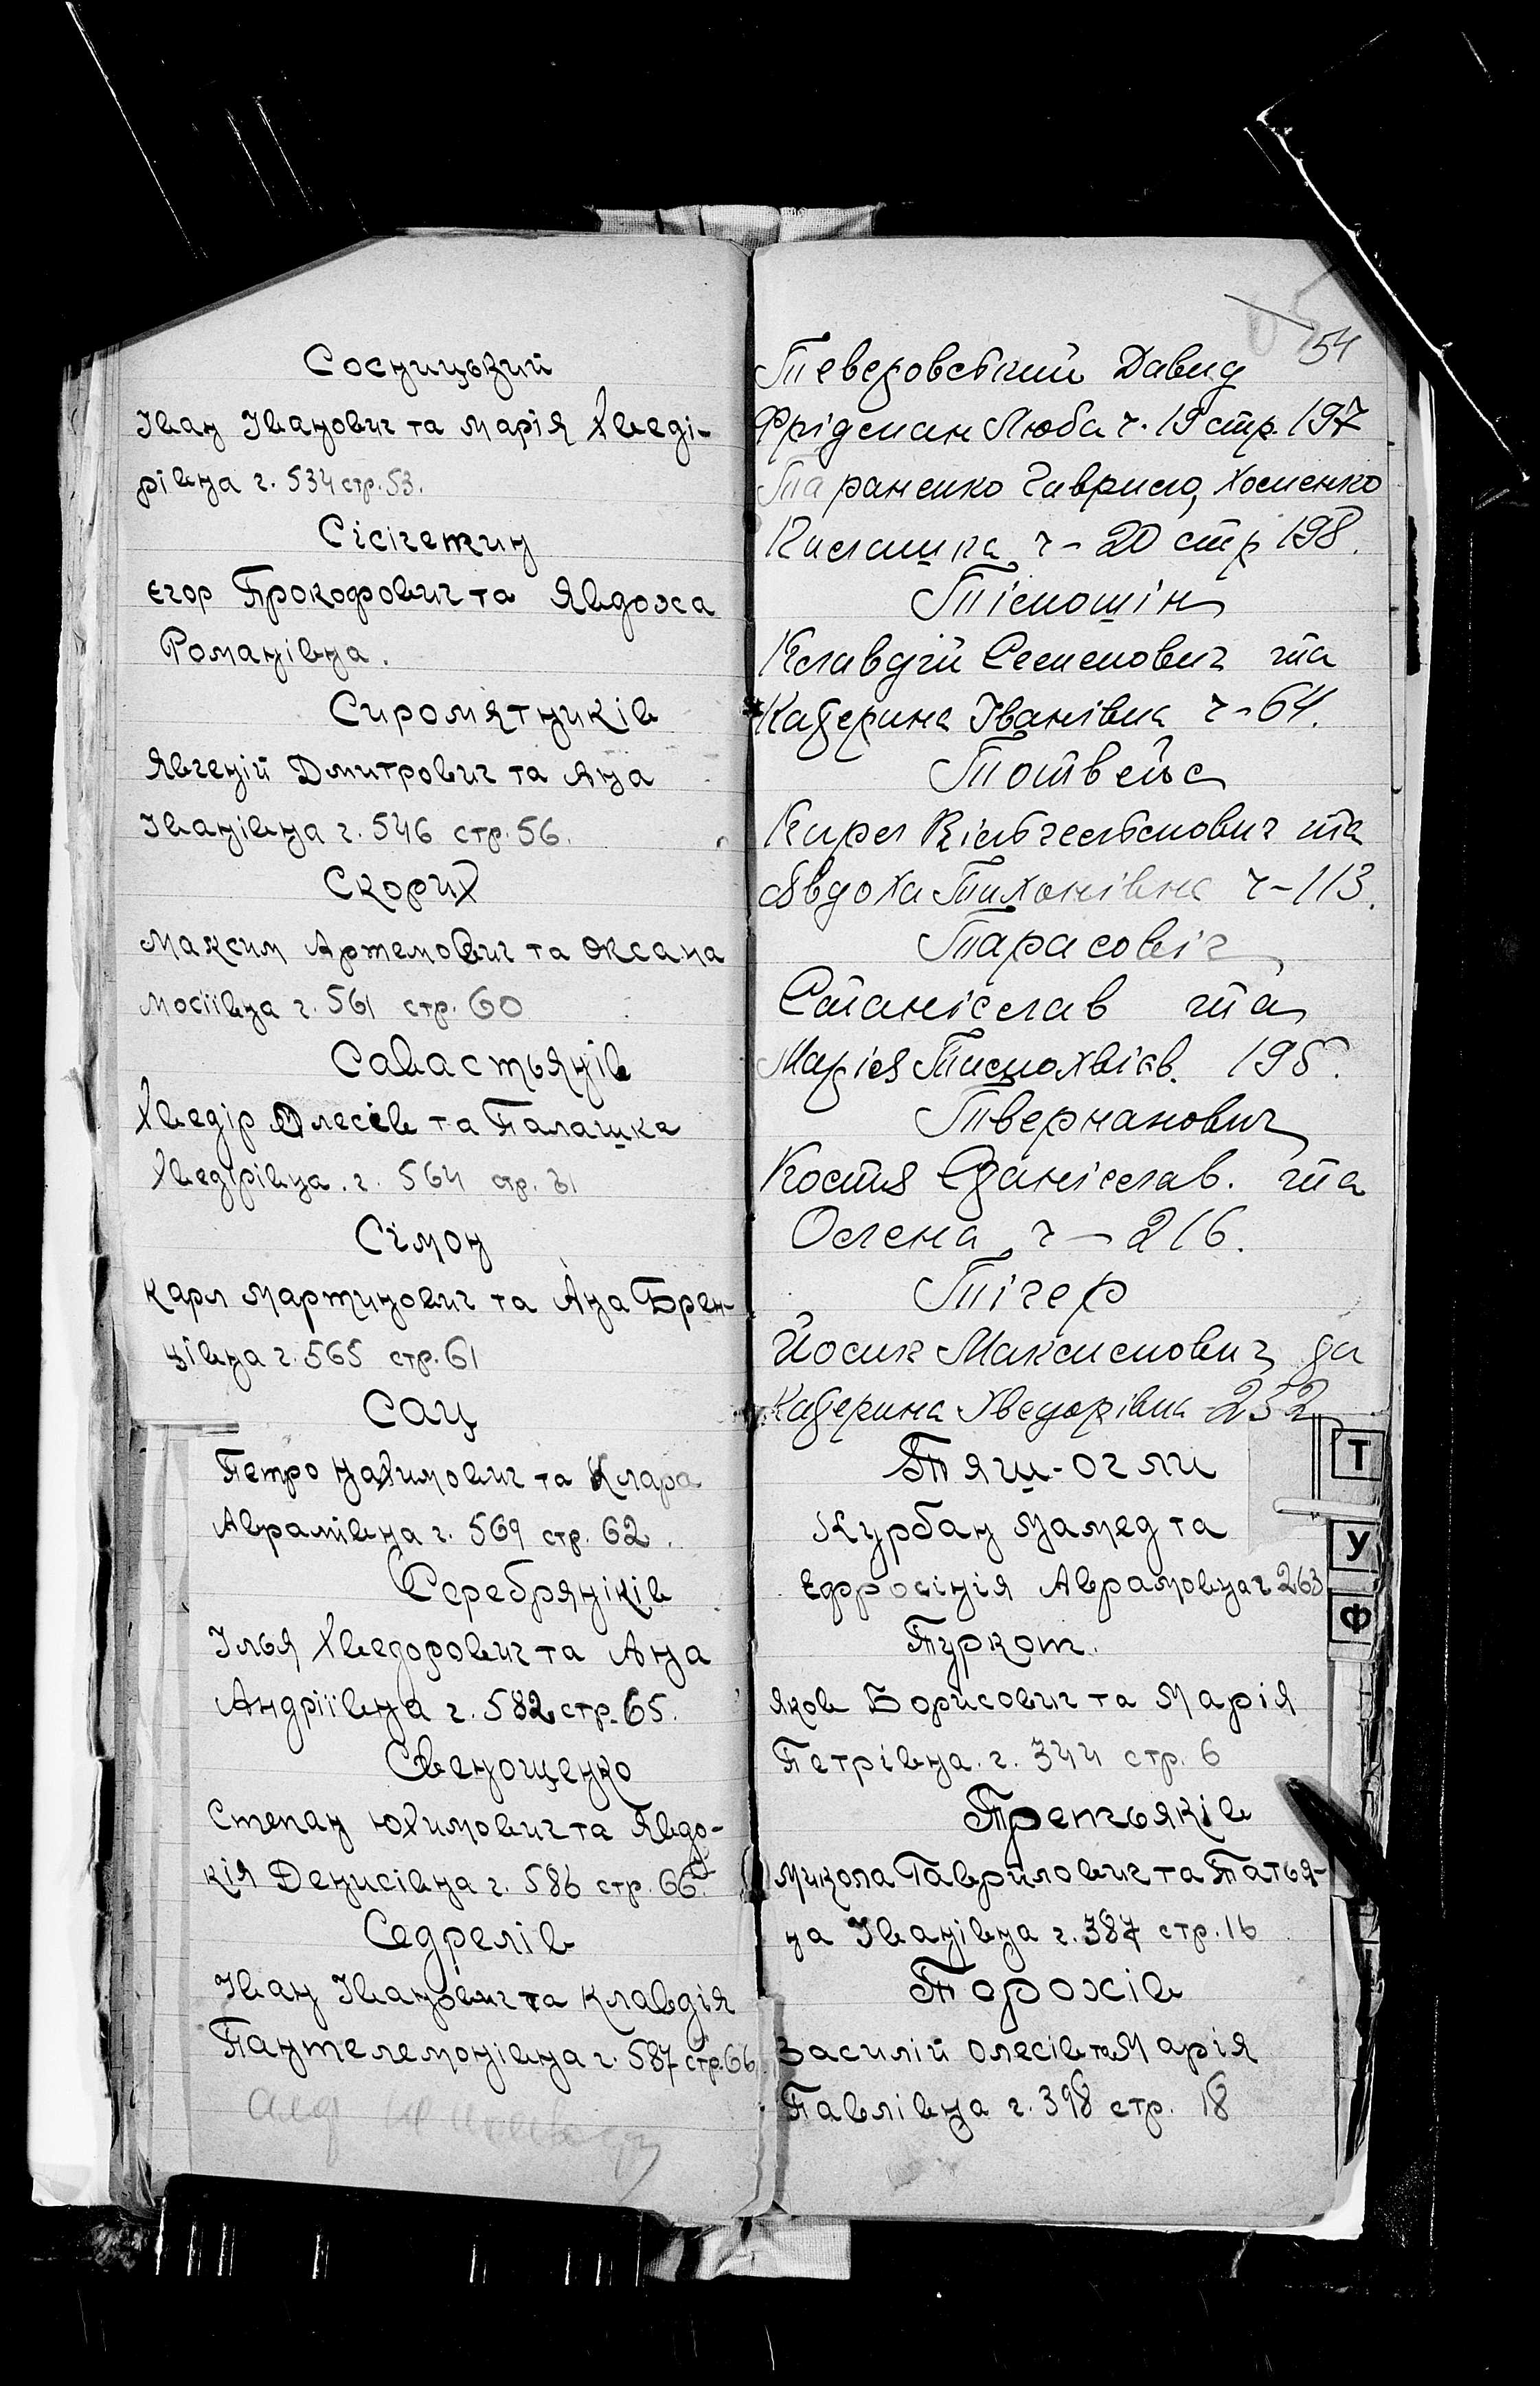 Сосницький
Іван Іванович та Марія Хведі-
рівна ч. 534 стр. 53.
Сісігетин
Єгор Прокофович та Явдоха
Романівна.
Сиромятників
Явгеній Дмитрович та Ана
Іванівна ч. 546 стр. 56.
Скорих
Максим Артемович та Оксана
Мосіївна ч. 561 стр. 60
Савастьянів
Хведір Олесів та Палашка
Хведірівна. ч. 564 стр. 61
Сімон
Карл Мартинович та Ана Брен-
цівна ч. 565 стр. 61
Сац
Петро Нахимович та Клара
Аврамівна ч. 569 стр. 62.
Серебряніків
Ілья Хведорович та Ана
Андріївна ч. 582 стр. 65.
Свенощенко
Степан Юхимович та Явдо-
кія Денисівна ч. 586 стр. 66.
Седрелів
Іван Іванович та Клавдія
Пантелемонівна ч. 587 стр. 66
54
Теверовський Давид
Фрідман Люба ч. 19 стр. 197
Тараненко Гаврило, Хоменко
Килашка ч - 20 стр 198.
Тімошін
Клавдій Семенович та
Катерина Іванівна ч - 64.
Тотвейс
Кирл Вільгельмович та
Явдоха Тихонівна ч - 113.
Тарасовіч
Станіслав та
Марія Тимохвіїв. 195.
Твернанович
Костя Станіслав. та
Олена ч - 216.
Тігер
Йосип Максимович та
Катерина Хведорівна 232
Тяш-огли
Курбан Мамед та
Ефросінія Аврамовна ч 263
Туркот.
Яков Борисович та Марія
Петрівна. ч. 344 стр. 6
Третьяків
Микола Гаврилович та Татья-
на Іванівна ч. 387 стр. 16
Торохів
Василій Олесів та Марія
Павлівна ч. 398 стр. 18
Т
У
Ф